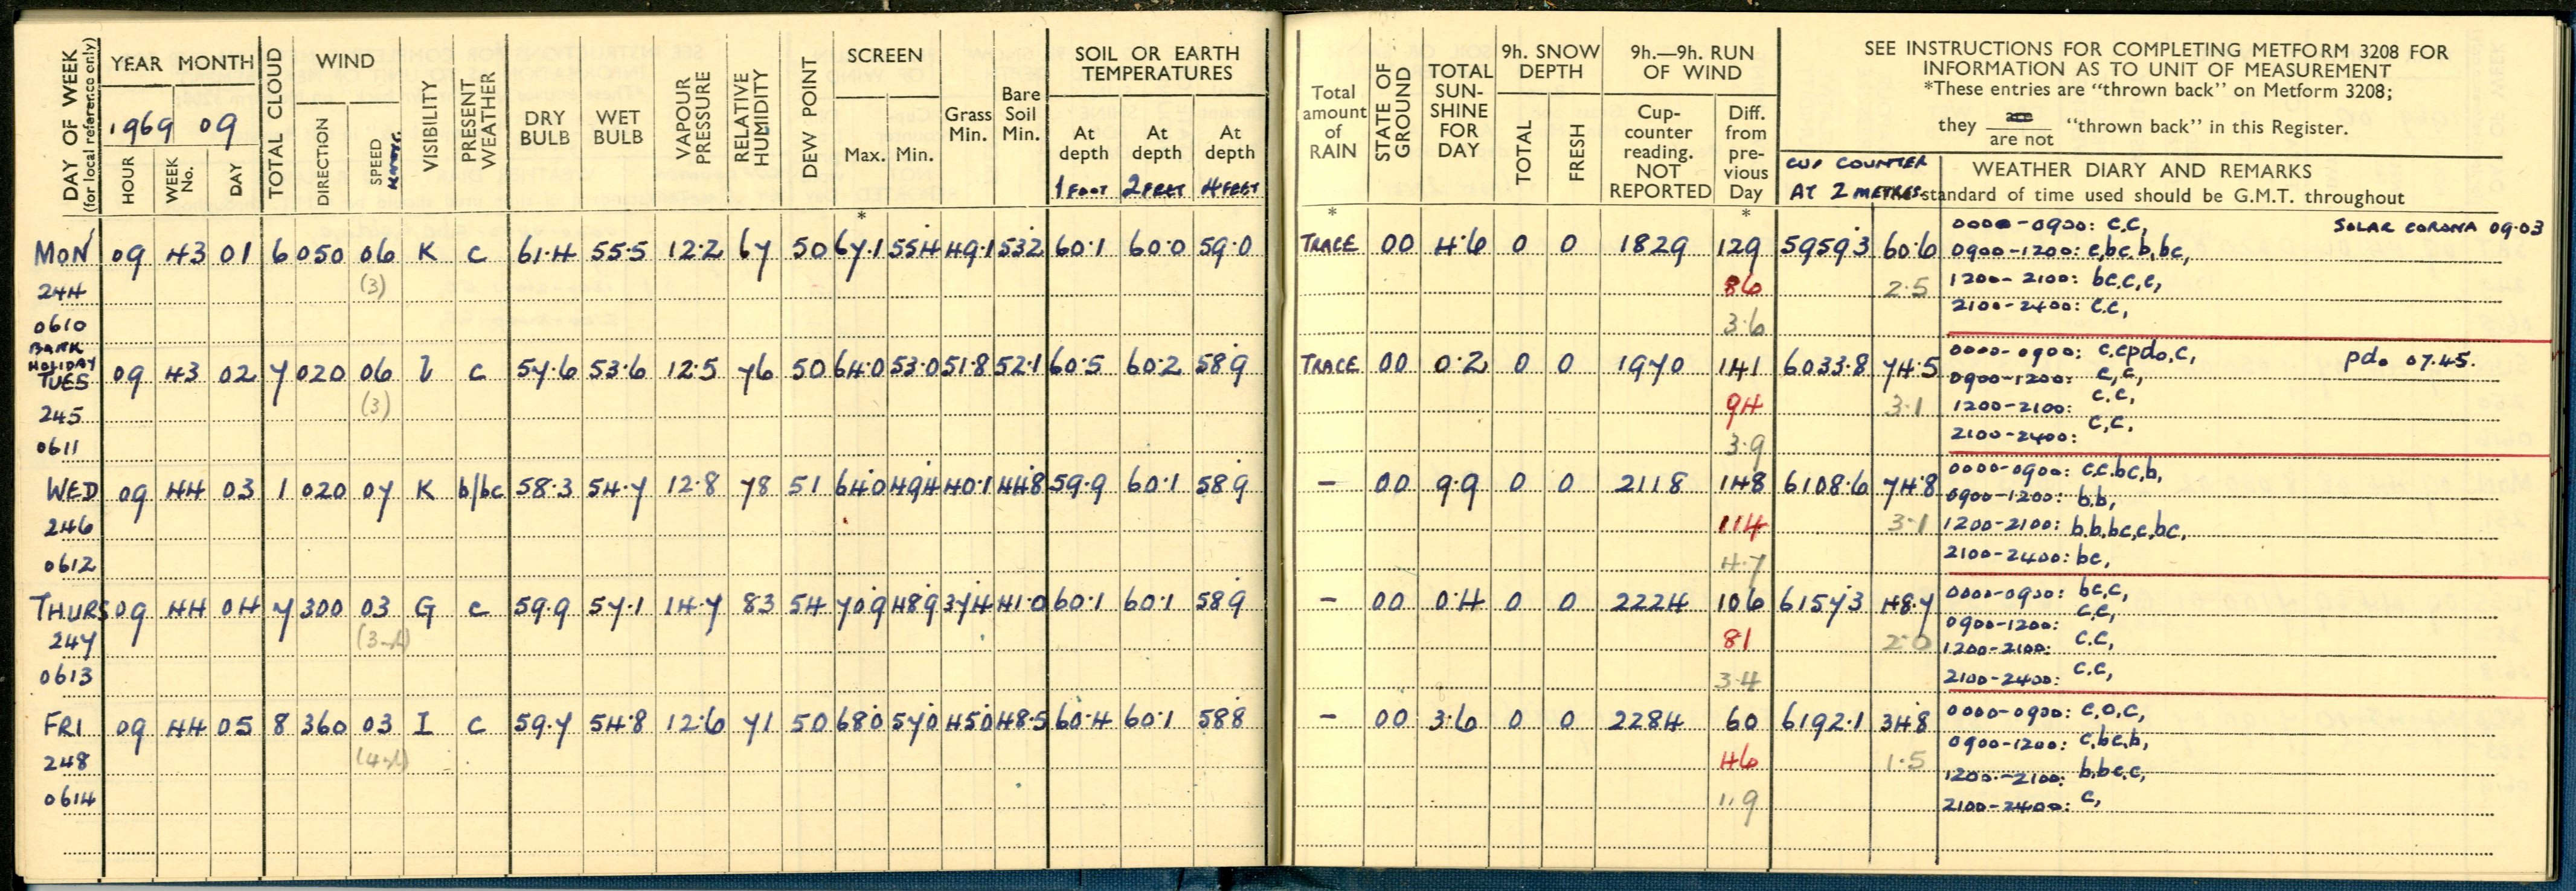 DAY OF WEEK (for local reference only)
YEAR MONTH
1969 09
HOUR WEEK No. DAY
TOTAL CLOUD
WIND
DIRECTION SPEED KNOTS.
VISIBILITY
PRESENT WEATHER
DRY BULB
WET BULB
VAPOUR PRESSURE
RELATIVE HUMIDITY
DEW POINT
SCREEN
Max. Min.
*
Grass Min.
Bare Soil Min.
SOIL OR EARTH TEMPERATURES
At depth 1 FOOT
At depth 2 FEET
At depth 4 FEET
Total amount of RAIN
*
STATE OF GROUND
TOTAL SUN-SHINE FOR DAY
9h. SNOW DEPTH
TOTAL FRESH
9h.—9h. RUN OF WIND
Cup-counter reading. NOT REPORTED
Diff. from pre-vious Day
*
SEE INSTRUCTIONS FOR COMPLETING METFORM 3208 FOR
INFORMATION AS TO UNIT OF MEASUREMENT
*These entries are "thrown back" on Metform 3208;
they are / are not "thrown back" in this Register.
CUP COUNTER AT 2 METRES.
WEATHER DIARY AND REMARKS
standard of time used should be G.M.T. throughout
MON 09 43 01 6 050 06 K c 61.4 55.5 12.2 67 50 67.1 55.4 49.1 53.2 60.1 60.0 59.0 TRACE 00 4.6 0 0 1829 129 5959.3 60.6 0000-0900: c.c, SOLAR CORONA 09.03
0900-1200: c,bc.b,bc,
244 (3) 86 2.5 1200-2100: bc.c,c,
0610 3.6 2100-2400: c.c,
BANK HOLIDAY
TUES 09 43 02 7 020 06 l c 57.6 53.6 12.5 76 50 64.0 53.0 51.8 52.1 60.5 60.2 58.9 TRACE 00 0.2 0 0 1970 141 6033.8 74.5 0000-0900: c.cpdo,c, pdo 07.45.
0900-1200: c,c,
245 (3) 94 3.1 1200-2100: c.c,
0611 3.9 2100-2400: c,c,
WED 09 44 03 1 020 07 K b/bc 58.3 54.7 12.8 78 51 64.0 49.4 40.1 44.8 59.9 60.1 58.9 – 00 9.9 0 0 2118 148 6108.6 74.8 0000-0900: c.c.bc,b,
0900-1200: b.b,
246 114 3.1 1200-2100: b.b.bc,c,bc,
0612 4.7 2100-2400: bc,
THURS 09 44 04 7 300 03 G c 59.9 57.1 14.7 83 54 70.9 48.9 37.4 41.0 60.1 60.1 58.9 – 00 0.4 0 0 2224 106 6157.3 48.7 0000-0900: bc,c,
0900-1200: c.c,
247 81 2.0 1200-2100: c.c,
0613 3.4 2100-2400: c.c,
FRI 09 44 05 8 360 03 I c 59.7 54.8 12.6 71 50 68.0 57.0 45.0 48.5 60.4 60.1 58.8 – 00 3.6 0 0 2284 60 6192.1 34.8 0000-0900: c,o,c,
0900-1200: c,bc,b,
248 46 1.5 1200-2100: b,bc.c,
0614 1.9 2100-2400: c,